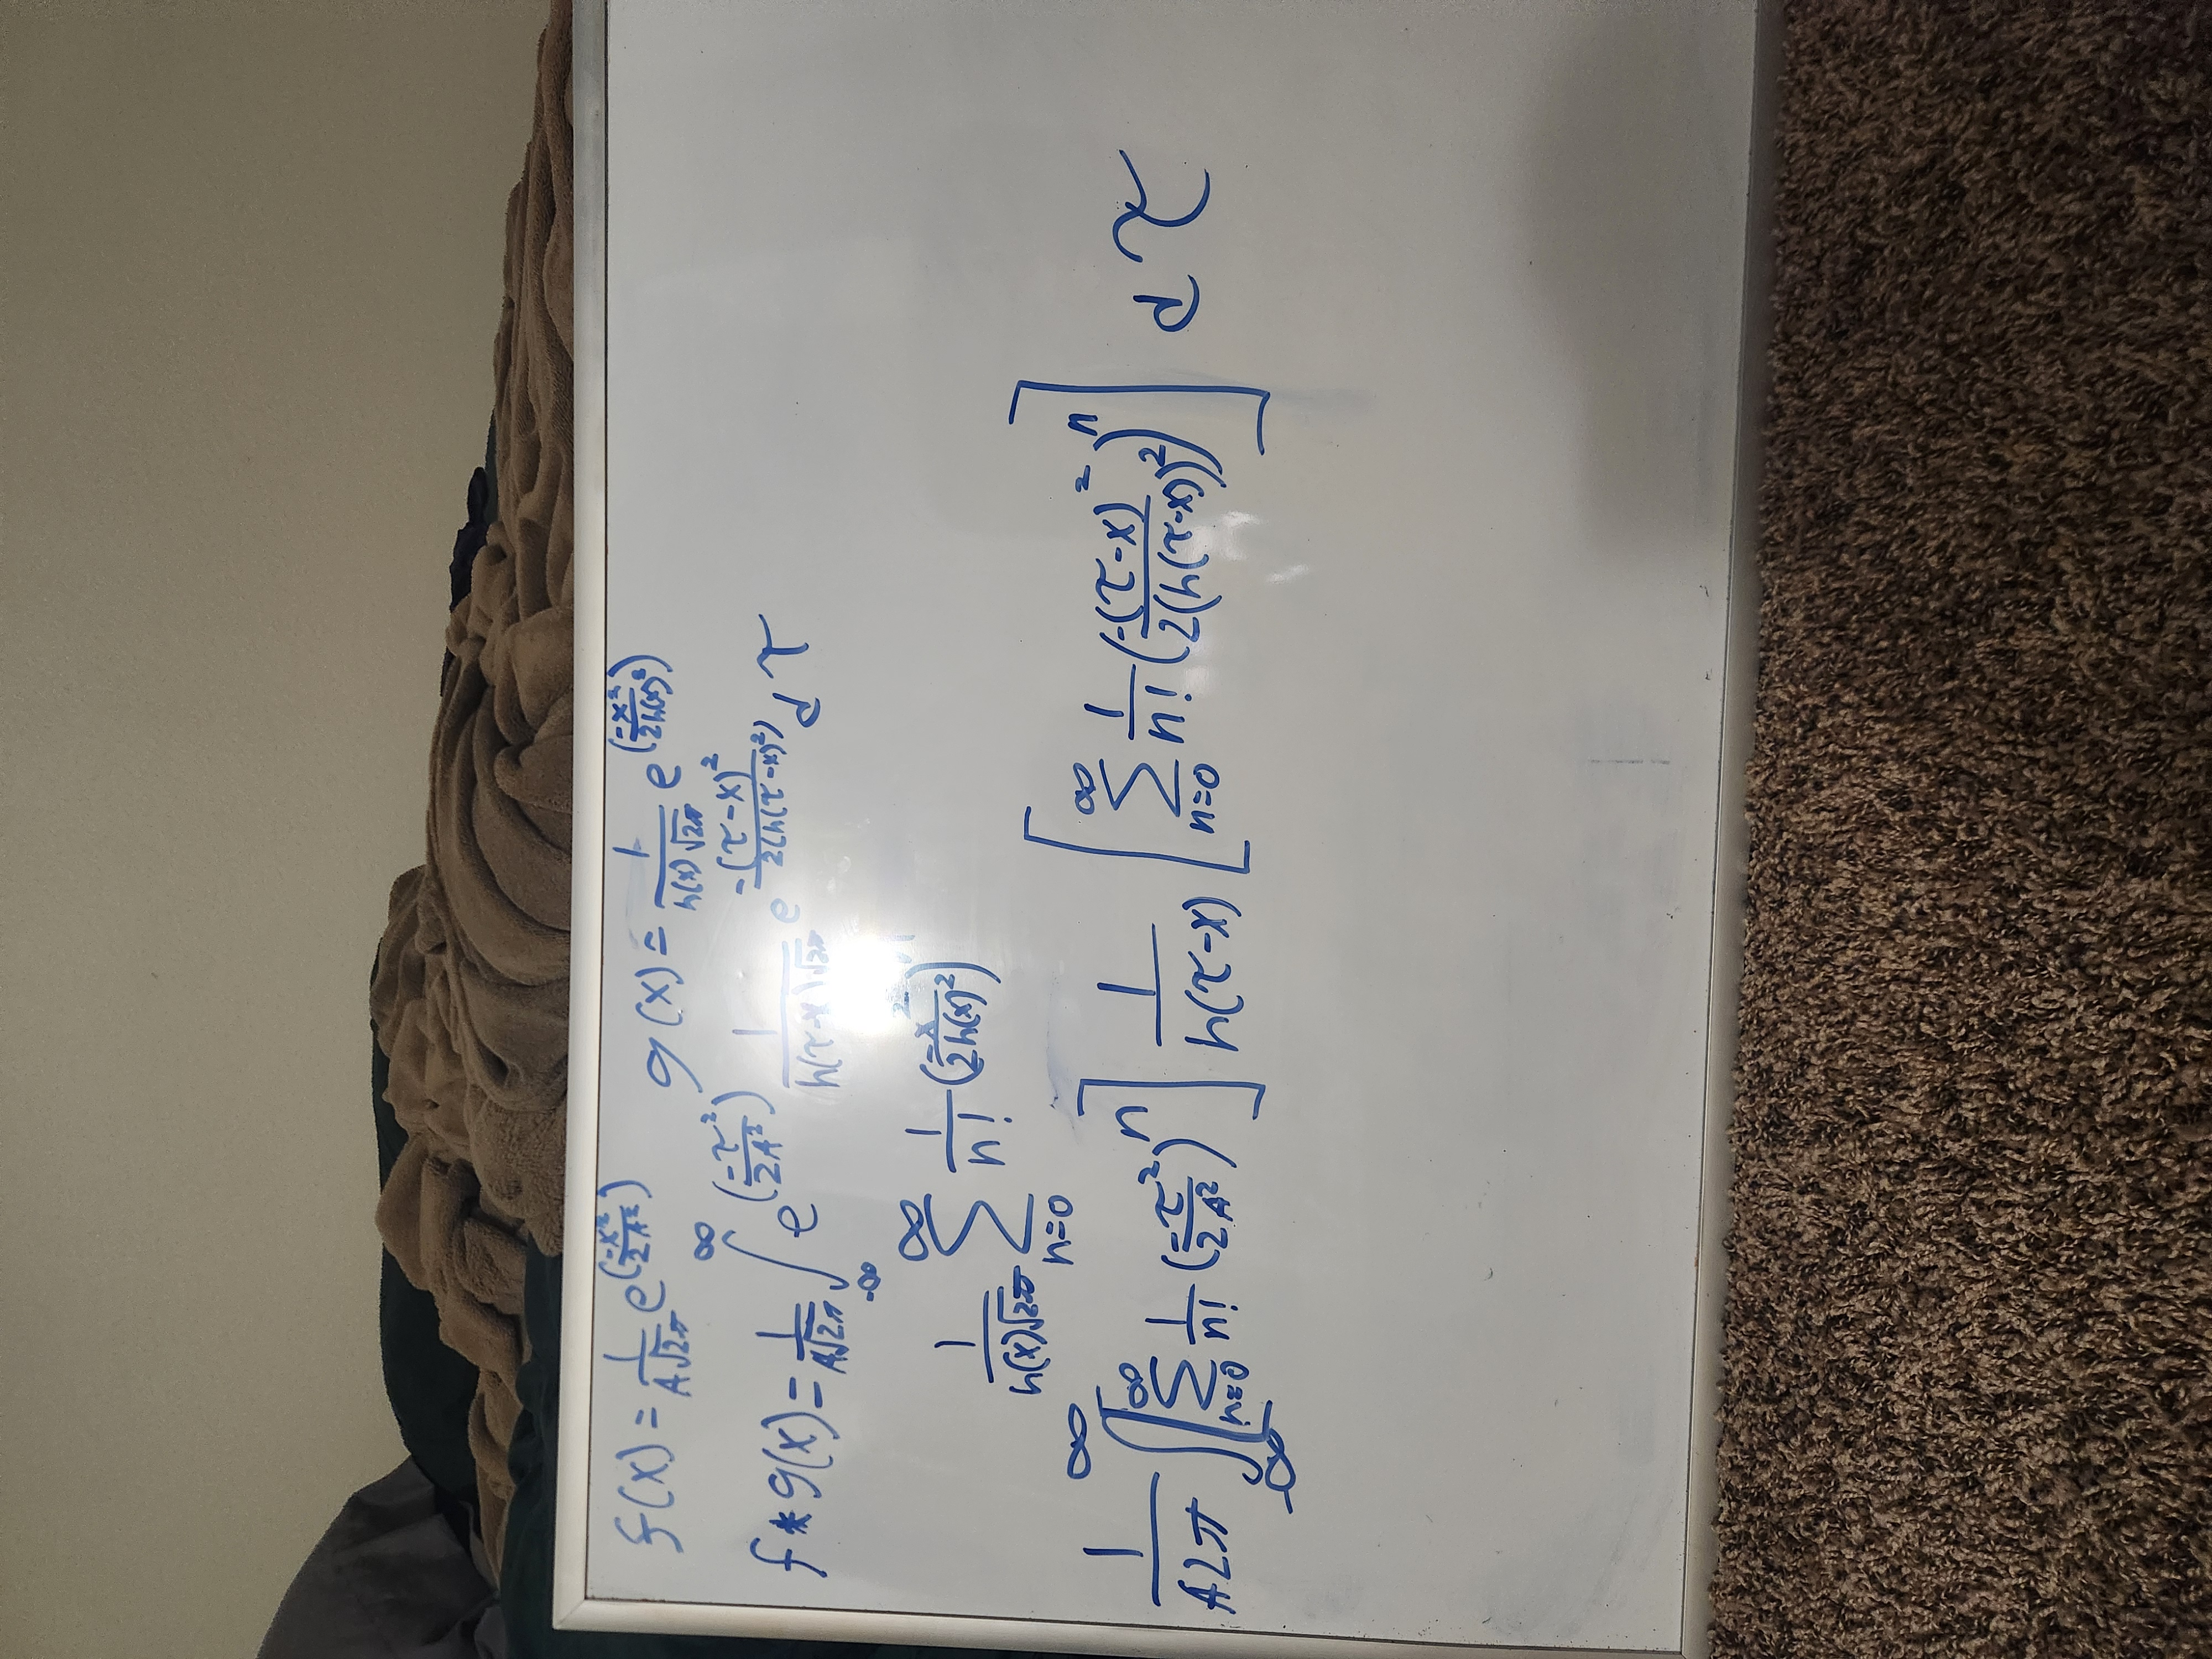 f(x) = 1/(A√2π) e^(-x²/2A²) g(x) = 1/(h(x)√2π) e^(-x²/2h(x)²)
f * g(x) = 1/(A√2π) ∫_{-∞}^{∞} e^(-τ²/2A²) 1/(h(τ-x)√2π) e^{-(τ-x)²/2(h(τ-x)²)} dτ
1/(h(x)√2π) ∑_{n=0}^{∞} 1/n! (-x²/2h(x)²)^n
1/(A2π) ∫_{-∞}^{∞} [∑_{n=0}^{∞} 1/n! (-τ²/2A²)^n] 1/h(τ-x) [∑_{n=0}^{∞} 1/n! (-(τ-x)²/2(h(τ-x))²)^n] dτ